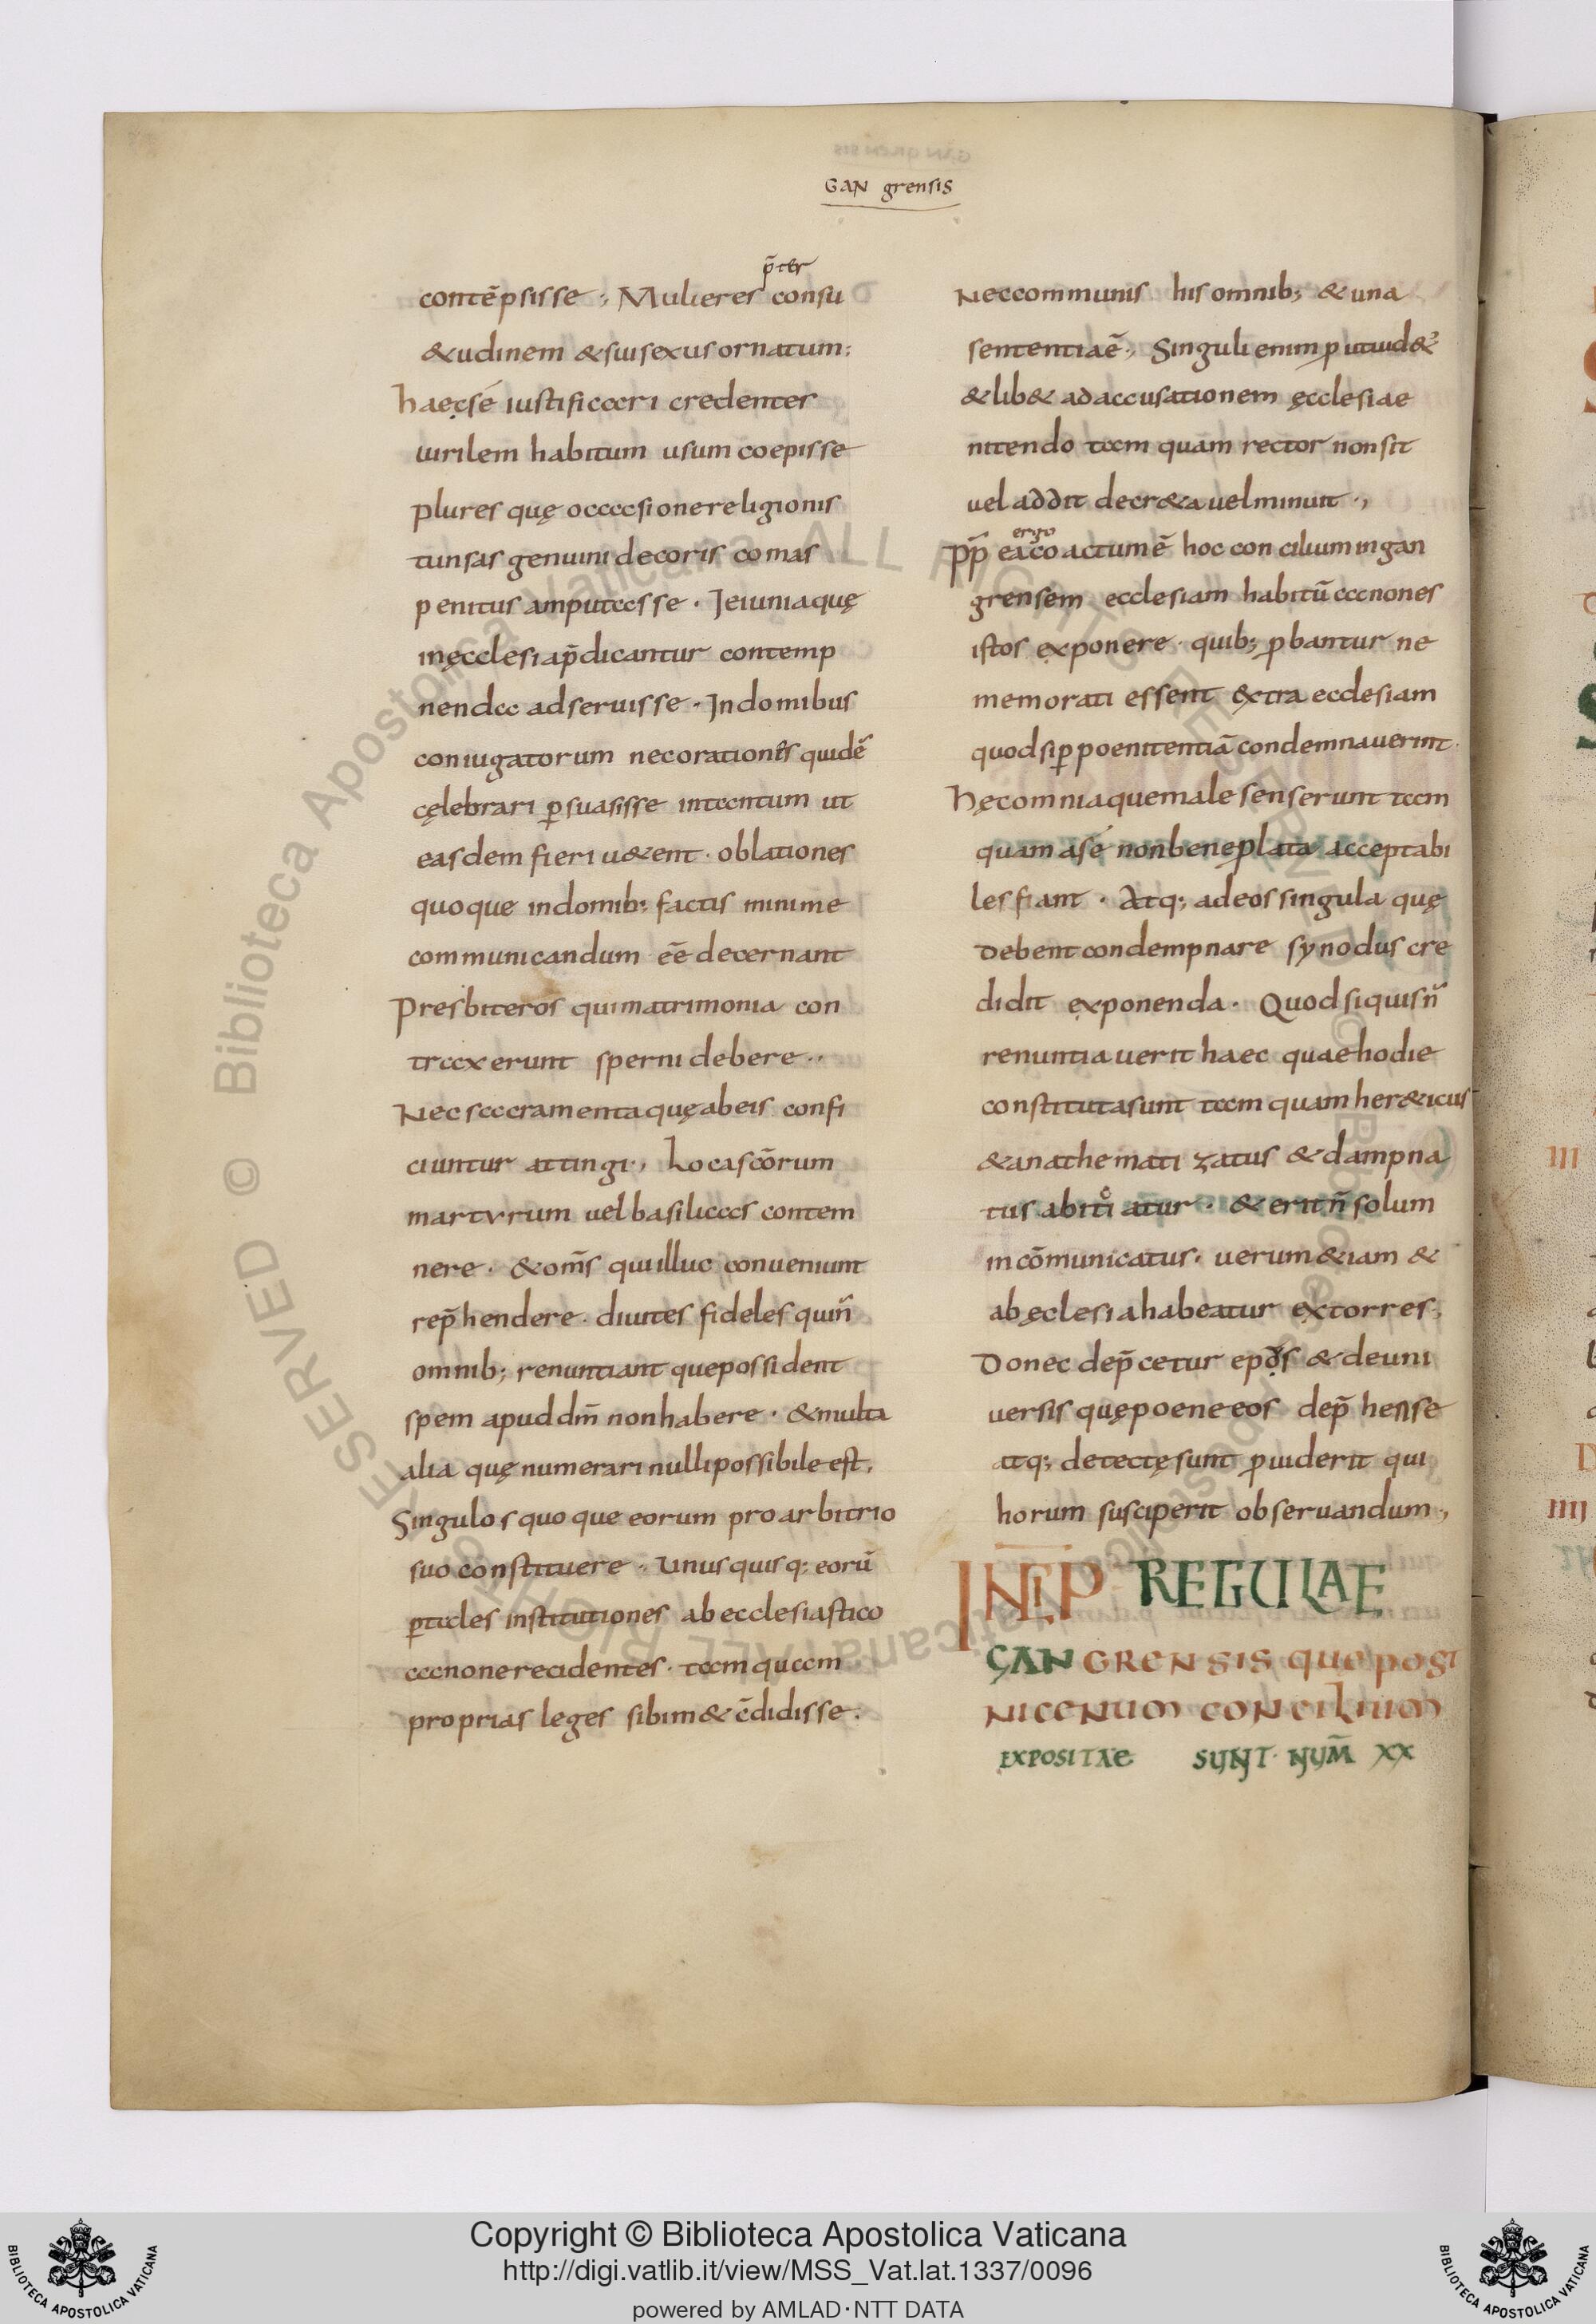 GAN grensis
p̄ter
contēpsisse ; Mulieres consu
&udinem & sui sexus ornatum;
haęc sé iustificari credenter
uirilem habitum usum coepisse
plures quę occasione religionis
tunsas genuini decoris comas
penitus amputasse · Jeiunia quę
in ęcclesia p̄dicantur contemp
nenda adseruisse · Jn domibus
coniugatorum nec orationēs quidē
cęlebrari ꝑsuasisse in tantum ut
easdem fieri u&ent · oblationes
quoque in domib; factis minime
communicandum eē decernant
Presbiteros qui matrimonia con
traxerunt sperni debere ··
Nec sacramenta quę ab eis confi
ciuntur attingi ·, Loca scōrum
martyrum uel basilicas contem
nere · & om̄s qui illuc conueniunt
rep̄hendere · diuites fideles qui n̄
omnib; renuntiant que possident
spem apud dm̄ non habere · & multa
alia quę numerari nulli possibile est,
Singulos quoque eorum pro arbitrio
suo constituere · Unusquisq; eorū
ꝑticles institutiones ab ecclesiastico
canone recidentes · tam quam
proprias leges sibim& c̄didisse ·
Nec communis his omnib; & una
sententia ē ·, Singuli enim ꝓut uid&
& lib& ad accusationem ęcclesiae
nitendo tam quam rector non sit
uel addit decr&a uel minuit ·,
ergo
Pp̄ ea coactum ē hoc concilium in gan
grensem ecclesiam habitū canones
istos exponere · quib; ꝓbantur ne
memorati essent extra ecclesiam
quod si ꝑ poenitentiā condemnauerint ·
Hęc omnia que male senserunt tam
quam a sé non bene ꝓlata acceptabi
les fiant · Atq; ad eos singula quę
debent condempnare synodus cre
didit exponenda · Quod si quis n̄
renuntiauerit haec quae hodie
constituta sunt tam quam her&icus
& anathematizatus & dampna
tus abiti atur · & erit n̄ solum
incōmunicatus · uerum &iam &
ab ęclesia habeatur extorres ·,
Donec dep̄cetur epōs & de uni
uersis quę poene eos dep̄hense
atq; detectę sunt ꝓuiderit qui
horum susciperit obseruandum ·,
INCIP REGULAE
GANGRENSIS que post
NICENUM CONCILIUM
EXPOSITAE SUNT · NUM̄ XX
Copyright © Biblioteca Apostolica Vaticana
http://digi.vatlib.it/view/MSS_Vat.lat.1337/0096
powered by AMLAD·NTT DATA